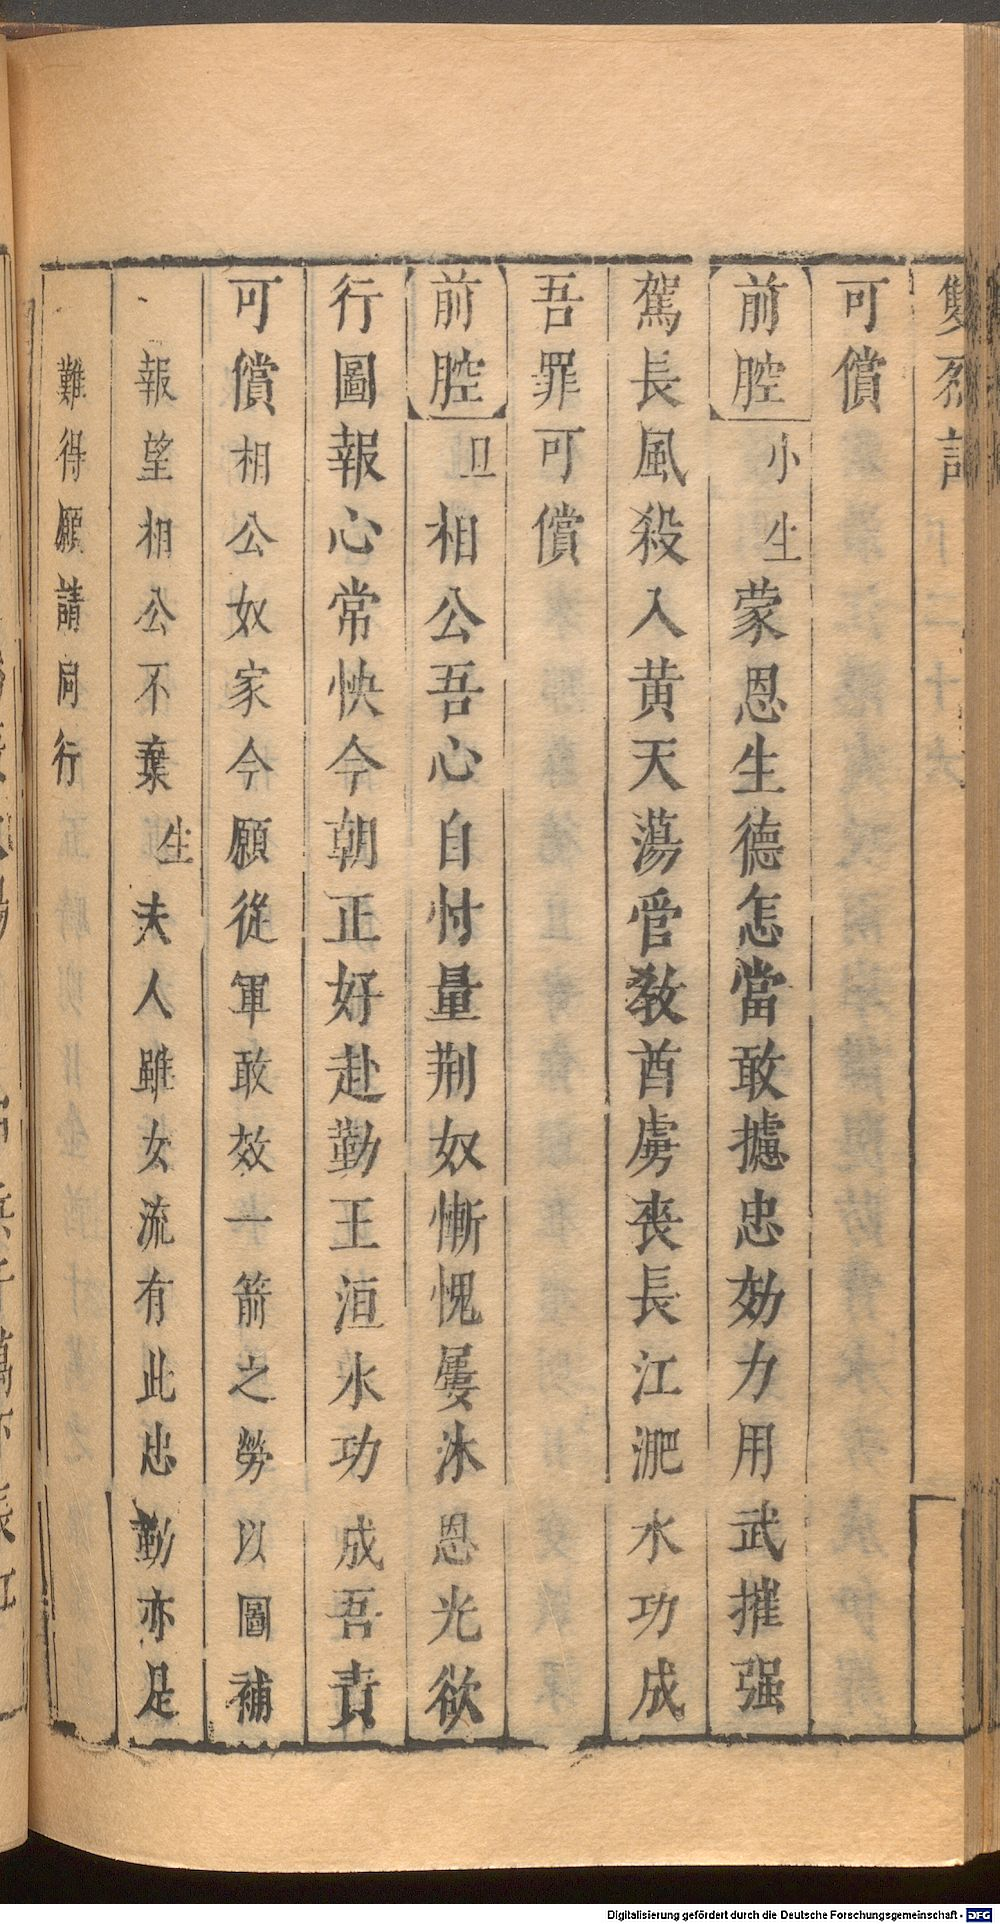 雙烈記
可償
前腔 小生 蒙恩生德怎當敢攄忠効力用武摧强
駕長風殺入黃天蕩管教酋虜喪長江淝水功成
吾罪可償
前腔 旦 相公吾心自忖量荆奴慚愧屢沐恩光欲
行圖報心常怏今朝正好赴勤王洹水功成吾責
可償 相公奴家今願從軍敢效一箭之勞以圖補
報望相公不棄 生 夫人雖女流有此忠勤亦足
難得願請同行
Digitalisierung gefördert durch die Deutsche Forschungsgemeinschaft - DFG